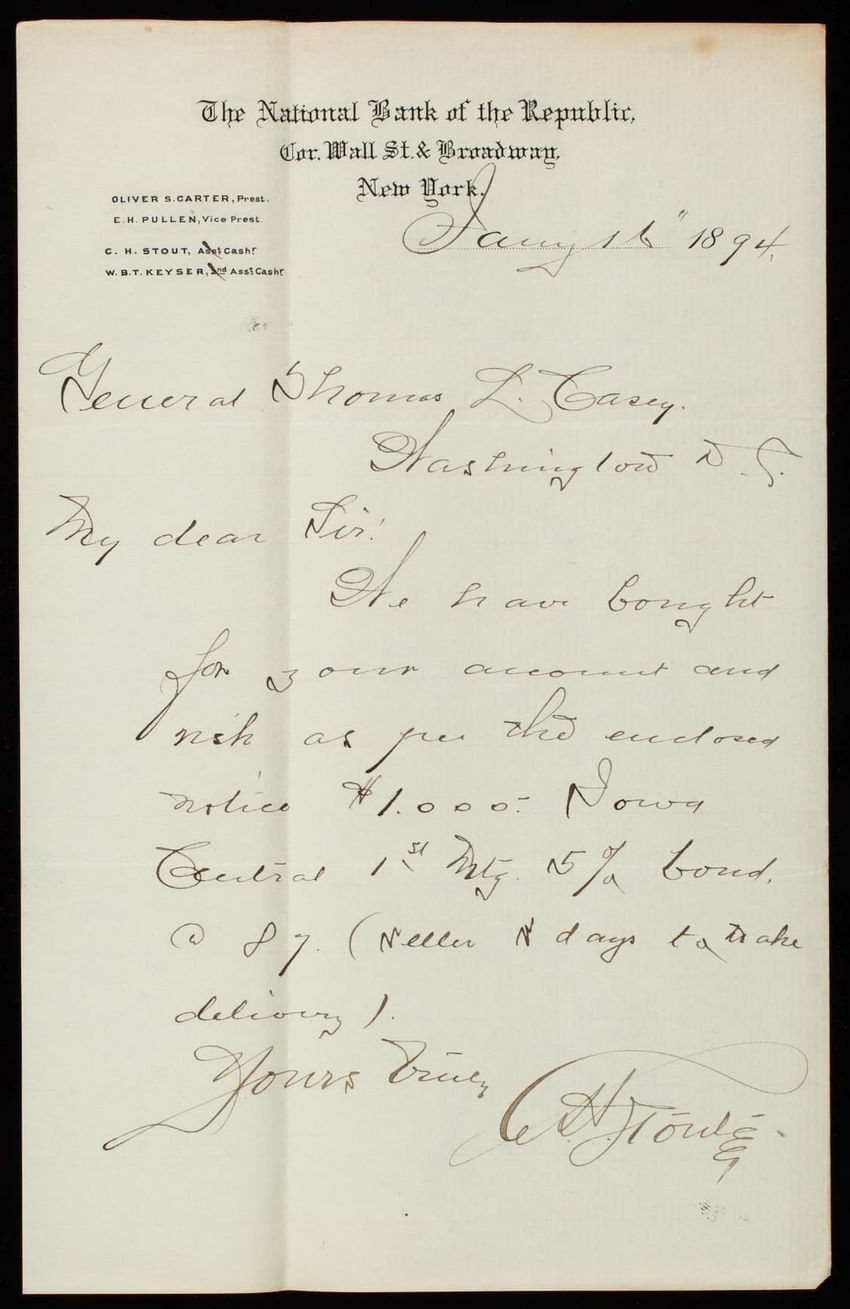 The National Bank of the Republic,
Cor. Wall St. & Broadway.
New York.
OLIVER S. CARTER, Prest.
E. H. PULLEN, Vice Prest.
C. H. STOUT, Asst Cashr
W. B. T. KEYSER, 2nd Asst Cashr
Jany 16" 1894.
General Thomas L. Casey.
Washington D.C.
My dear Sir:
We have bought
for your account and
risk as per the enclosed
notice $1.000. Iowa
Central 1st Mtg. 5% bond.
@ 87. (seller days to make
delivery).
Yours truly
C. H. Stout